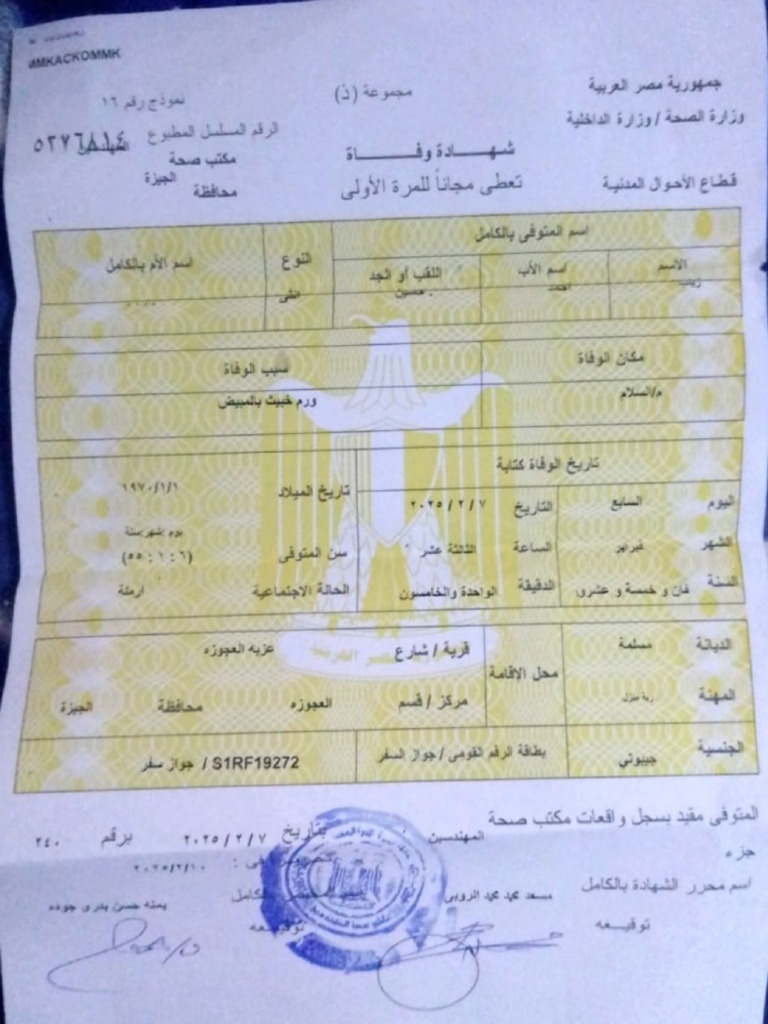 MMKACKOMMK
جمهورية مصر العربية
مجموعة (ذ)
نموذج رقم ١٦
وزارة الصحة / وزارة الداخلية
الرقم المسلسل المطبوع ٥٢٧٦٨١٤
شهـــادة وفـــــاة
مكتب صحة
قطاع الأحوال المدنية
تعطى مجاناً للمرة الأولى
محافظة الجيزة
اسم المتوفى بالكامل
النوع
اسم الأم بالكامل
الاسم
اسم الأب
اللقب أو الجد
زينب
احمد
حسين
انثى
مكان الوفاة
سبب الوفاة
م/السلام
ورم خبيث بالمبيض
تاريخ الوفاة كتابة
تاريخ الميلاد ١٩٧٠/١/١
اليوم السابع
التاريخ ٢٠٢٥ / ٢ / ٧
الشهر فبراير
الساعة الثالثة عشر
سن المتوفى
يوم:شهر:سنة
(٥٥ : ١ : ٦)
السنة فان و خمسة و عشرو
الدقيقة الواحدة والخامسون
الحالة الاجتماعية أرملة
الديانة مسلمة
محل الاقامة
قرية / شارع عزبه العجوزه
المهنة ربة منزل
مركز / قسم العجوزه
محافظة الجيزة
الجنسية جيبوتي
بطاقة الرقم القومى / جواز السفر
S1RF19272 / جواز سفر
المتوفى مقيد بسجل واقعات مكتب صحة المهندسين
بتاريخ ٢٠٢٥ / ٢ / ٧ برقم ٢٤٠
جزء
٢٠٢٥/٢/١٠
اسم محرر الشهادة بالكامل مسعد محمد محمد الروبى
بالكامل يمنه حسن بدرى جوده
توقيـــعه
توقيـــعه